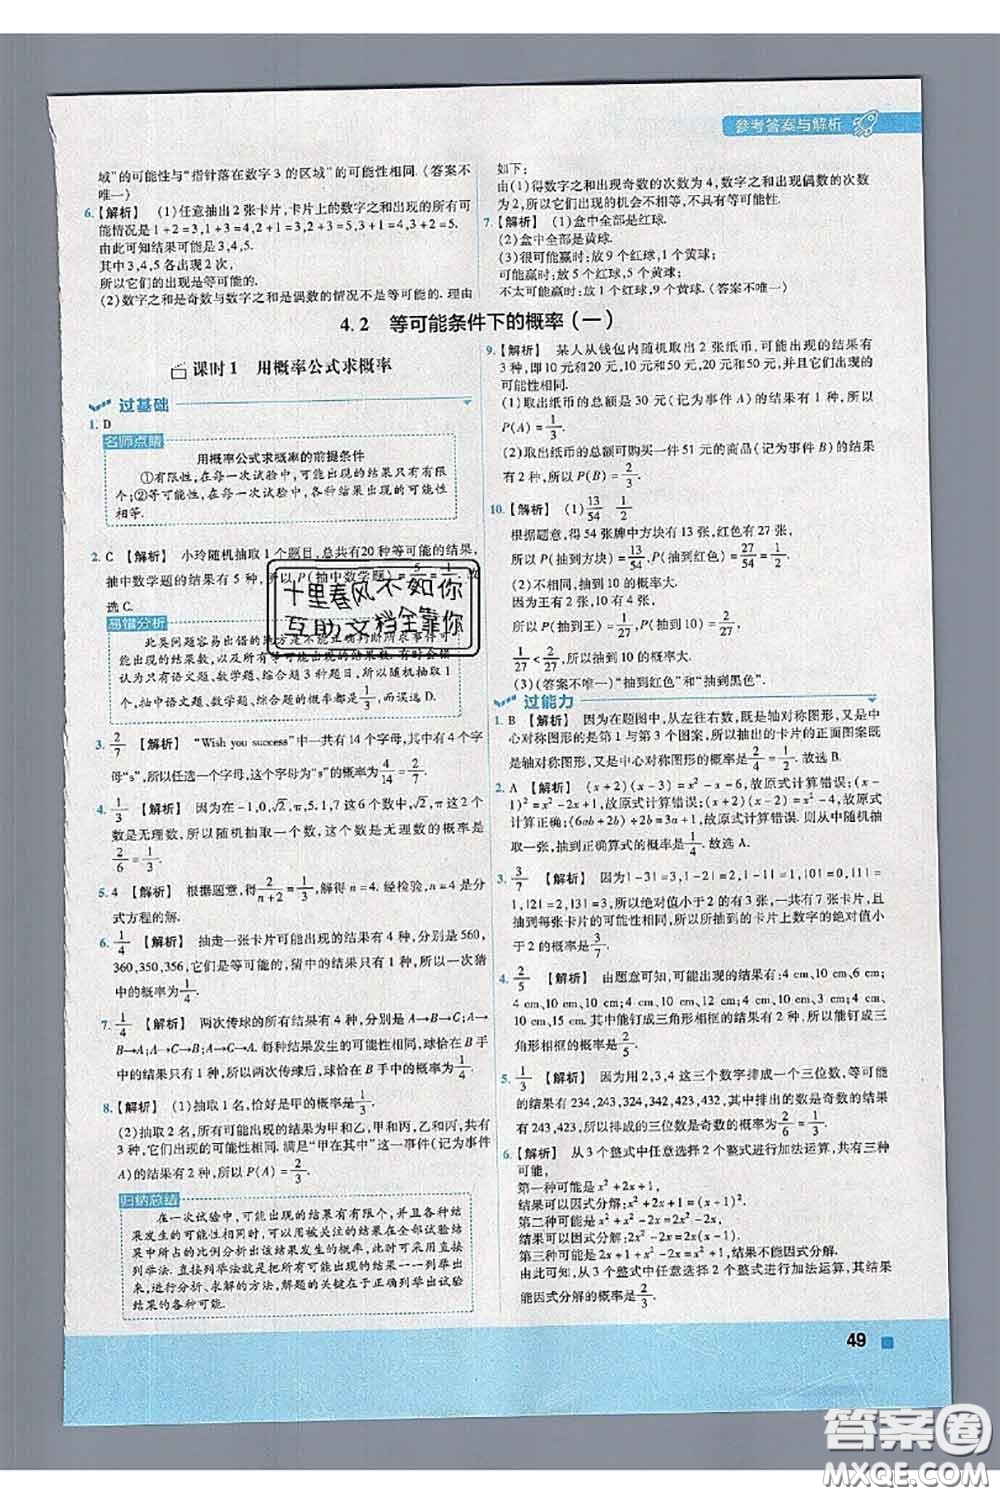 参考答案与解析
域”的可能性与“指针落在数字 3 的区域”的可能性相同. (答案不
唯一)
6.【解析】 (1)任意抽出 2 张卡片,卡片上的数字之和出现的所有可
能情况是 1+2=3,1+3=4,1+4=5,2+3=5,2+4=6,3+4=7
由此可知结果可能是 3,4,5.
其中 3,4,5 各出现 2 次,
所以它们的出现是等可能的.
(2)数字之和是奇数与数字之和是偶数的情况不是等可能的. 理由
如下:
由(1)得数字之和出现奇数的次数为 4,数字之和出现偶数的次数
为 2,所以它们出现的机会不相等,不具有等可能性.
7.【解析】 (1)盒中全部是红球.
(2)盒中全部是黄球.
(3)很可能赢时:放 9 个红球,1 个黄球;
可能赢时:放 5 个红球,5 个黄球;
不太可能赢时:放 1 个红球,9 个黄球. (答案不唯一)
4.2 等可能条件下的概率(一)
课时 1 用概率公式求概率
过基础
1. D
名师点睛
用概率公式求概率的前提条件
①有限性,在每一次试验中,可能出现的结果只有有限
个;②等可能性,在每一次试验中,各种结果出现的可能性
相等.
2. C 【解析】 小玲随机抽取 1 个题目,总共有20 种等可能的结果,
抽中数学题的结果有 5 种,所以 P(抽中数学题)=5/20=1/4. 故
选 C.
十里春风不如你
互助文档全靠你
易错分析
此类问题容易出错的地方是不能正确判断所求事件可
能出现的结果数,以及所有等可能出现的结果数. 有时会错
认为只有语文题、数学题、综合题 3 种题目,所以随机抽取 1
个,抽中语文题、数学题、综合题的概率都是1/3,而误选 D.
3. 2/7 【解析】 “Wish you success”中一共有 14 个字母,其中有 4 个字
母“s”,所以任选一个字母,这个字母为“s”的概率为4/14=2/7.
4. 1/3 【解析】 因为在 -1,0,√2,π,5.1,7 这 6 个数中,√2,π 这 2 个
数是无理数,所以随机抽取一个数,这个数是无理数的概率是
2/6=1/3.
5. 4 【解析】 根据题意,得2/(n+2)=1/3,解得 n=4. 经检验,n=4 是分
式方程的解.
6. 1/4 【解析】 抽走一张卡片可能出现的结果有 4 种,分别是 560,
360,350,356,它们是等可能的,猜中的结果只有 1 种,所以一次猜
中的概率为1/4.
7. 1/4 【解析】 两次传球的所有结果有 4 种,分别是 A→B→C;A→
B→A;A→C→B;A→C→A. 每种结果发生的可能性相同,球恰在 B 手
中的结果只有 1 种,所以两次传球后,球恰在 B 手中的概率是1/4.
8.【解析】 (1)抽取 1 名,恰好是甲的概率是1/3.
(2)抽取 2 名,所有可能出现的结果为甲和乙,甲和丙,乙和丙,共有
3 种,它们出现的可能性相同. 满足“甲在其中”这一事件(记为事件
A)的结果有 2 种,所以 P(A)=2/3.
归纳总结
在一次试验中,可能出现的结果有有限个,并且各种结
果发生的可能性相同时,可以用被关注的结果在全部试验结
果中所占的比例分析出该结果发生的概率,此时可采用直接
列举法. 直接列举法就是把所有可能出现的结果一一列举出
来,进行分析、求解的方法,解题的关键在于正确列举出试验
结果的各种可能.
9.【解析】 某人从钱包内随机取出 2 张纸币,可能出现的结果有
3 种,即 10 元和20 元,10 元和50 元,20 元和50 元,并且它们出现的
可能性相同.
(1)取出纸币的总额是 30 元(记为事件 A)的结果有 1 种,所以
P(A)=1/3.
(2)取出纸币的总额可购买一件 51 元的商品(记为事件 B)的结果
有 2 种,所以 P(B)=2/3.
10.【解析】 (1)13/54 1/2
根据题意,得 54 张牌中方块有 13 张,红色有 27 张,
所以 P(抽到方块)=13/54,P(抽到红色)=27/54=1/2.
(2)不相同,抽到 10 的概率大.
所以 P(抽到王)=1/27,P(抽到 10)=2/27,
1/27<2/27,所以抽到 10 的概率大.
(3)(答案不唯一)“抽到红色”和“抽到黑色”.
过能力
1. B 【解析】 因为在题图中,从左往右数,既是轴对称图形,又是中
心对称图形的是第 1 与第 3 个图案,所以抽出的卡片的正面图案既
是轴对称图形,又是中心对称图形的概率是2/4=1/2. 故选 B.
2. A 【解析】 (x+2)(x-3)=x²-x-6,故原式计算错误;(x-
1)²=x²-2x+1,故原式计算错误;(x+2)(x-2)=x²-4,故原式
计算正确;(6ab+2b)÷2b=3a+1,故原式计算错误. 则从中随机
抽取一张,抽到正确算式的概率是1/4. 故选 A.
3. 3/7 【解析】 因为|-3|=3,|-2|=2,|-1|=1,|0|=0,|1|=
1,|2|=2,|3|=3,所以绝对值小于 2 的有 3 张,一共有 7 张卡片,且
抽到每张卡片的可能性相同,所以抽到的卡片上数字的绝对值小
于 2 的概率是3/7.
4. 2/5 【解析】 由题意可知,可能出现的结果有:4 cm、10 cm、6 cm;
4 cm、10 cm、10 cm;4 cm、10 cm、12 cm;4 cm、10 cm、14
cm;4 cm、10 cm、16 cm. 其中能钉成三角形相框的结果有 2 种,所以能钉成三
角形相框的概率是2/5.
5. 1/3 【解析】 因为用 2,3,4 这三个数字排成一个三位数,等可能
的结果有 234,243,324,342,423,432,其中排出的数是奇数的结果
有 243,423,所以排成的三位数是奇数的概率为2/6=1/3.
6.【解析】 从 3 个整式中任意选择 2 个整式进行加法运算,共有三种
可能,
第一种可能是 x²+2x+1,
结果可以因式分解:x²+2x+1=(x+1)²;
第二种可能是 x²+x²-2x=2x²-2x,
结果可以因式分解:2x²-2x=2x(x-1);
第三种可能是 2x+1+x²-2x=x²+1,结果不能因式分解.
由此可知,从 3 个整式中任意选择 2 个整式进行加法运算,结果
能因式分解的概率是2/3.
49
答案圈
MXQE.COM